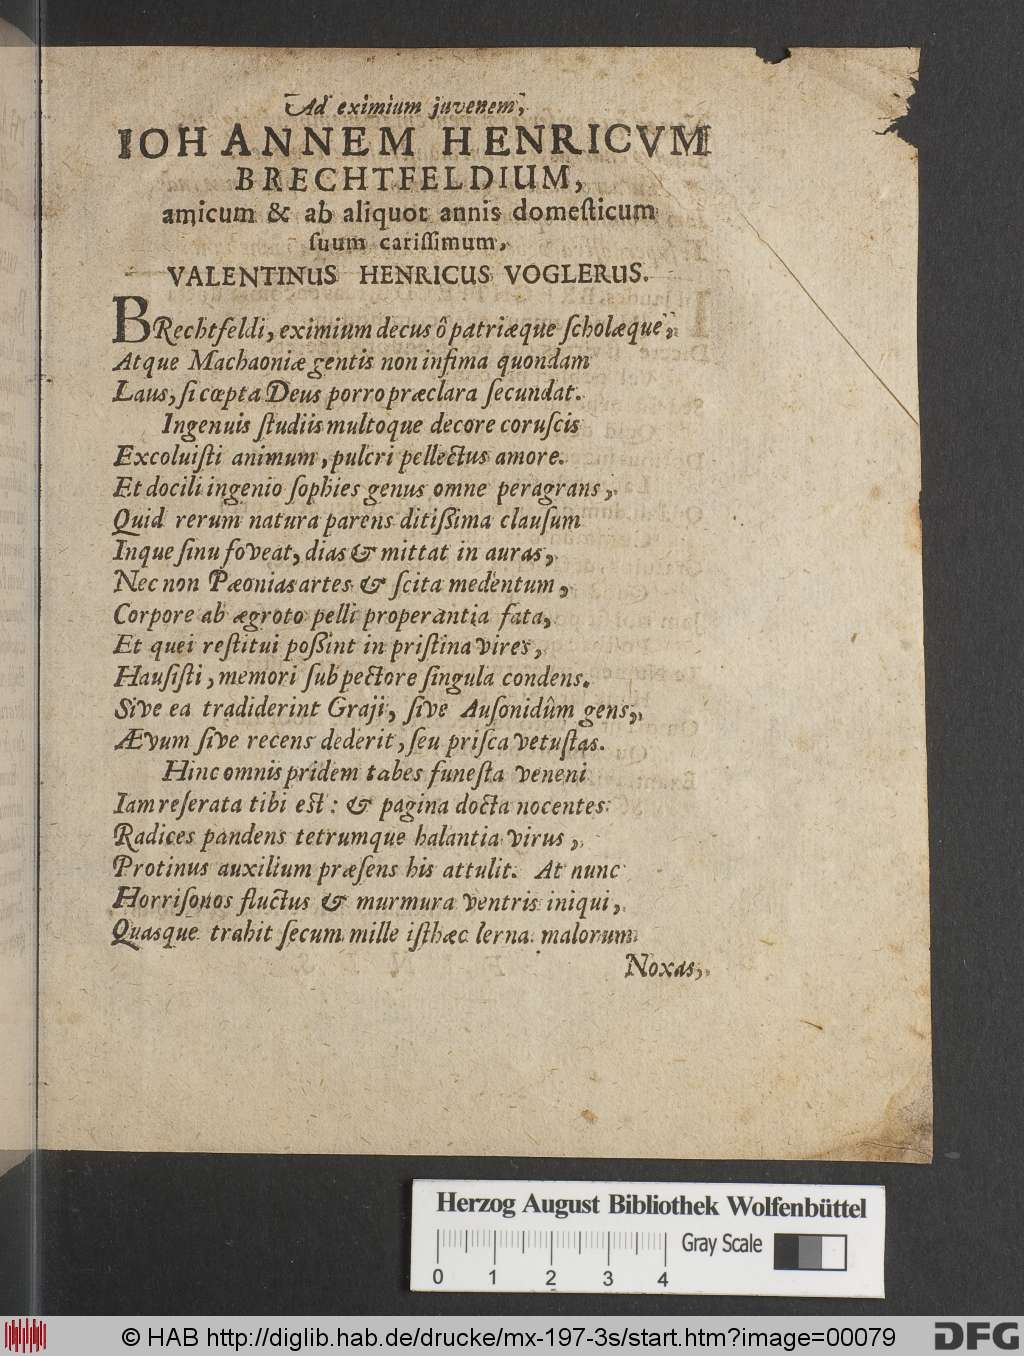 Ad eximium juvenem,
IOHANNEM HENRICVM
BRECHTFELDIUM,
amicum & ab aliquot annis domeſticum
ſuum cariſſimum,
VALENTINUS HENRICUS VOGLERUS.
BRechtfeldi, eximium decus ô patriæque ſcholæque,
Atque Machaoniæ gentis non infima quondam
Laus, ſi cœpta Deus porro præclara ſecundat.
Ingenuis ſtudiis multoque decore coruſcis
Excoluiſti animum, pulcri pellectus amore.
Et docili ingenio ſophies genus omne peragrans,
Quid rerum natura parens ditißima clauſum
Inque ſinu foveat, dias & mittat in auras,
Nec non Pæonias artes & ſcita medentum,
Corpore ab ægroto pelli properantia fata,
Et quei reſtitui poßint in priſtina vires,
Hauſiſti, memori ſub pectore ſingula condens.
Sive ea tradiderint Graji, ſive Auſonidûm gens,
Ævum ſive recens dederit, ſeu priſca vetuſtas.
Hinc omnis pridem tabes funeſta veneni
Iam reſerata tibi eſt: & pagina docta nocentes
Radices pandens tetrumque halantia virus,
Protinus auxilium præſens his attulit. At nunc
Horriſonos fluctus & murmura ventris iniqui,
Quasque trahit ſecum mille iſthæc lerna malorum
Noxas,
Herzog August Bibliothek Wolfenbüttel
Gray Scale
0 1 2 3 4
© HAB http://diglib.hab.de/drucke/mx-197-3s/start.htm?image=00079
DFG